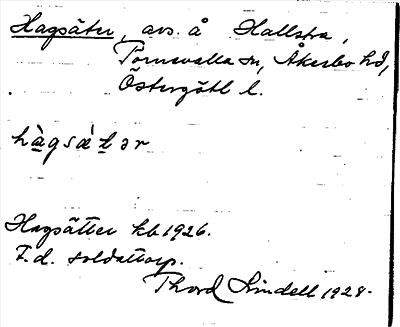 Hagsäter, avs. å Hallsta,
Törnevalla sn, Åkerbo hd,
Östergötl l.
hàgsä̀tər
Hagsätter kb 1926.
F.d. soldattorp.
Thord Lindell 1928.